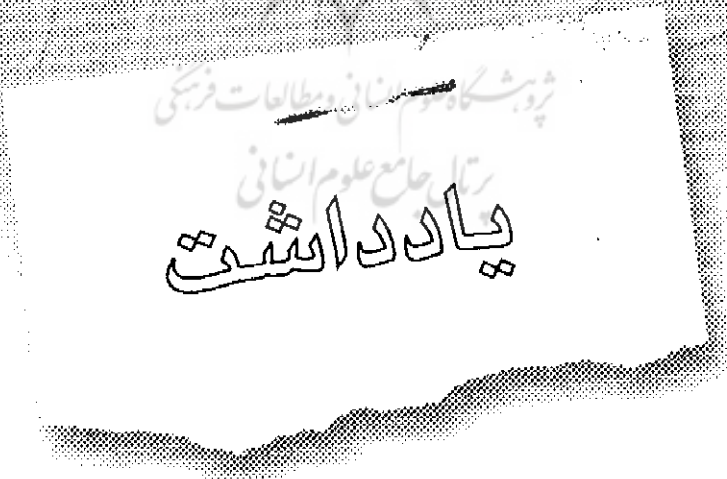 پژوهشگاه علوم انسانی و مطالعات فرهنگی
پرتال جامع علوم انسانی
یادداشت